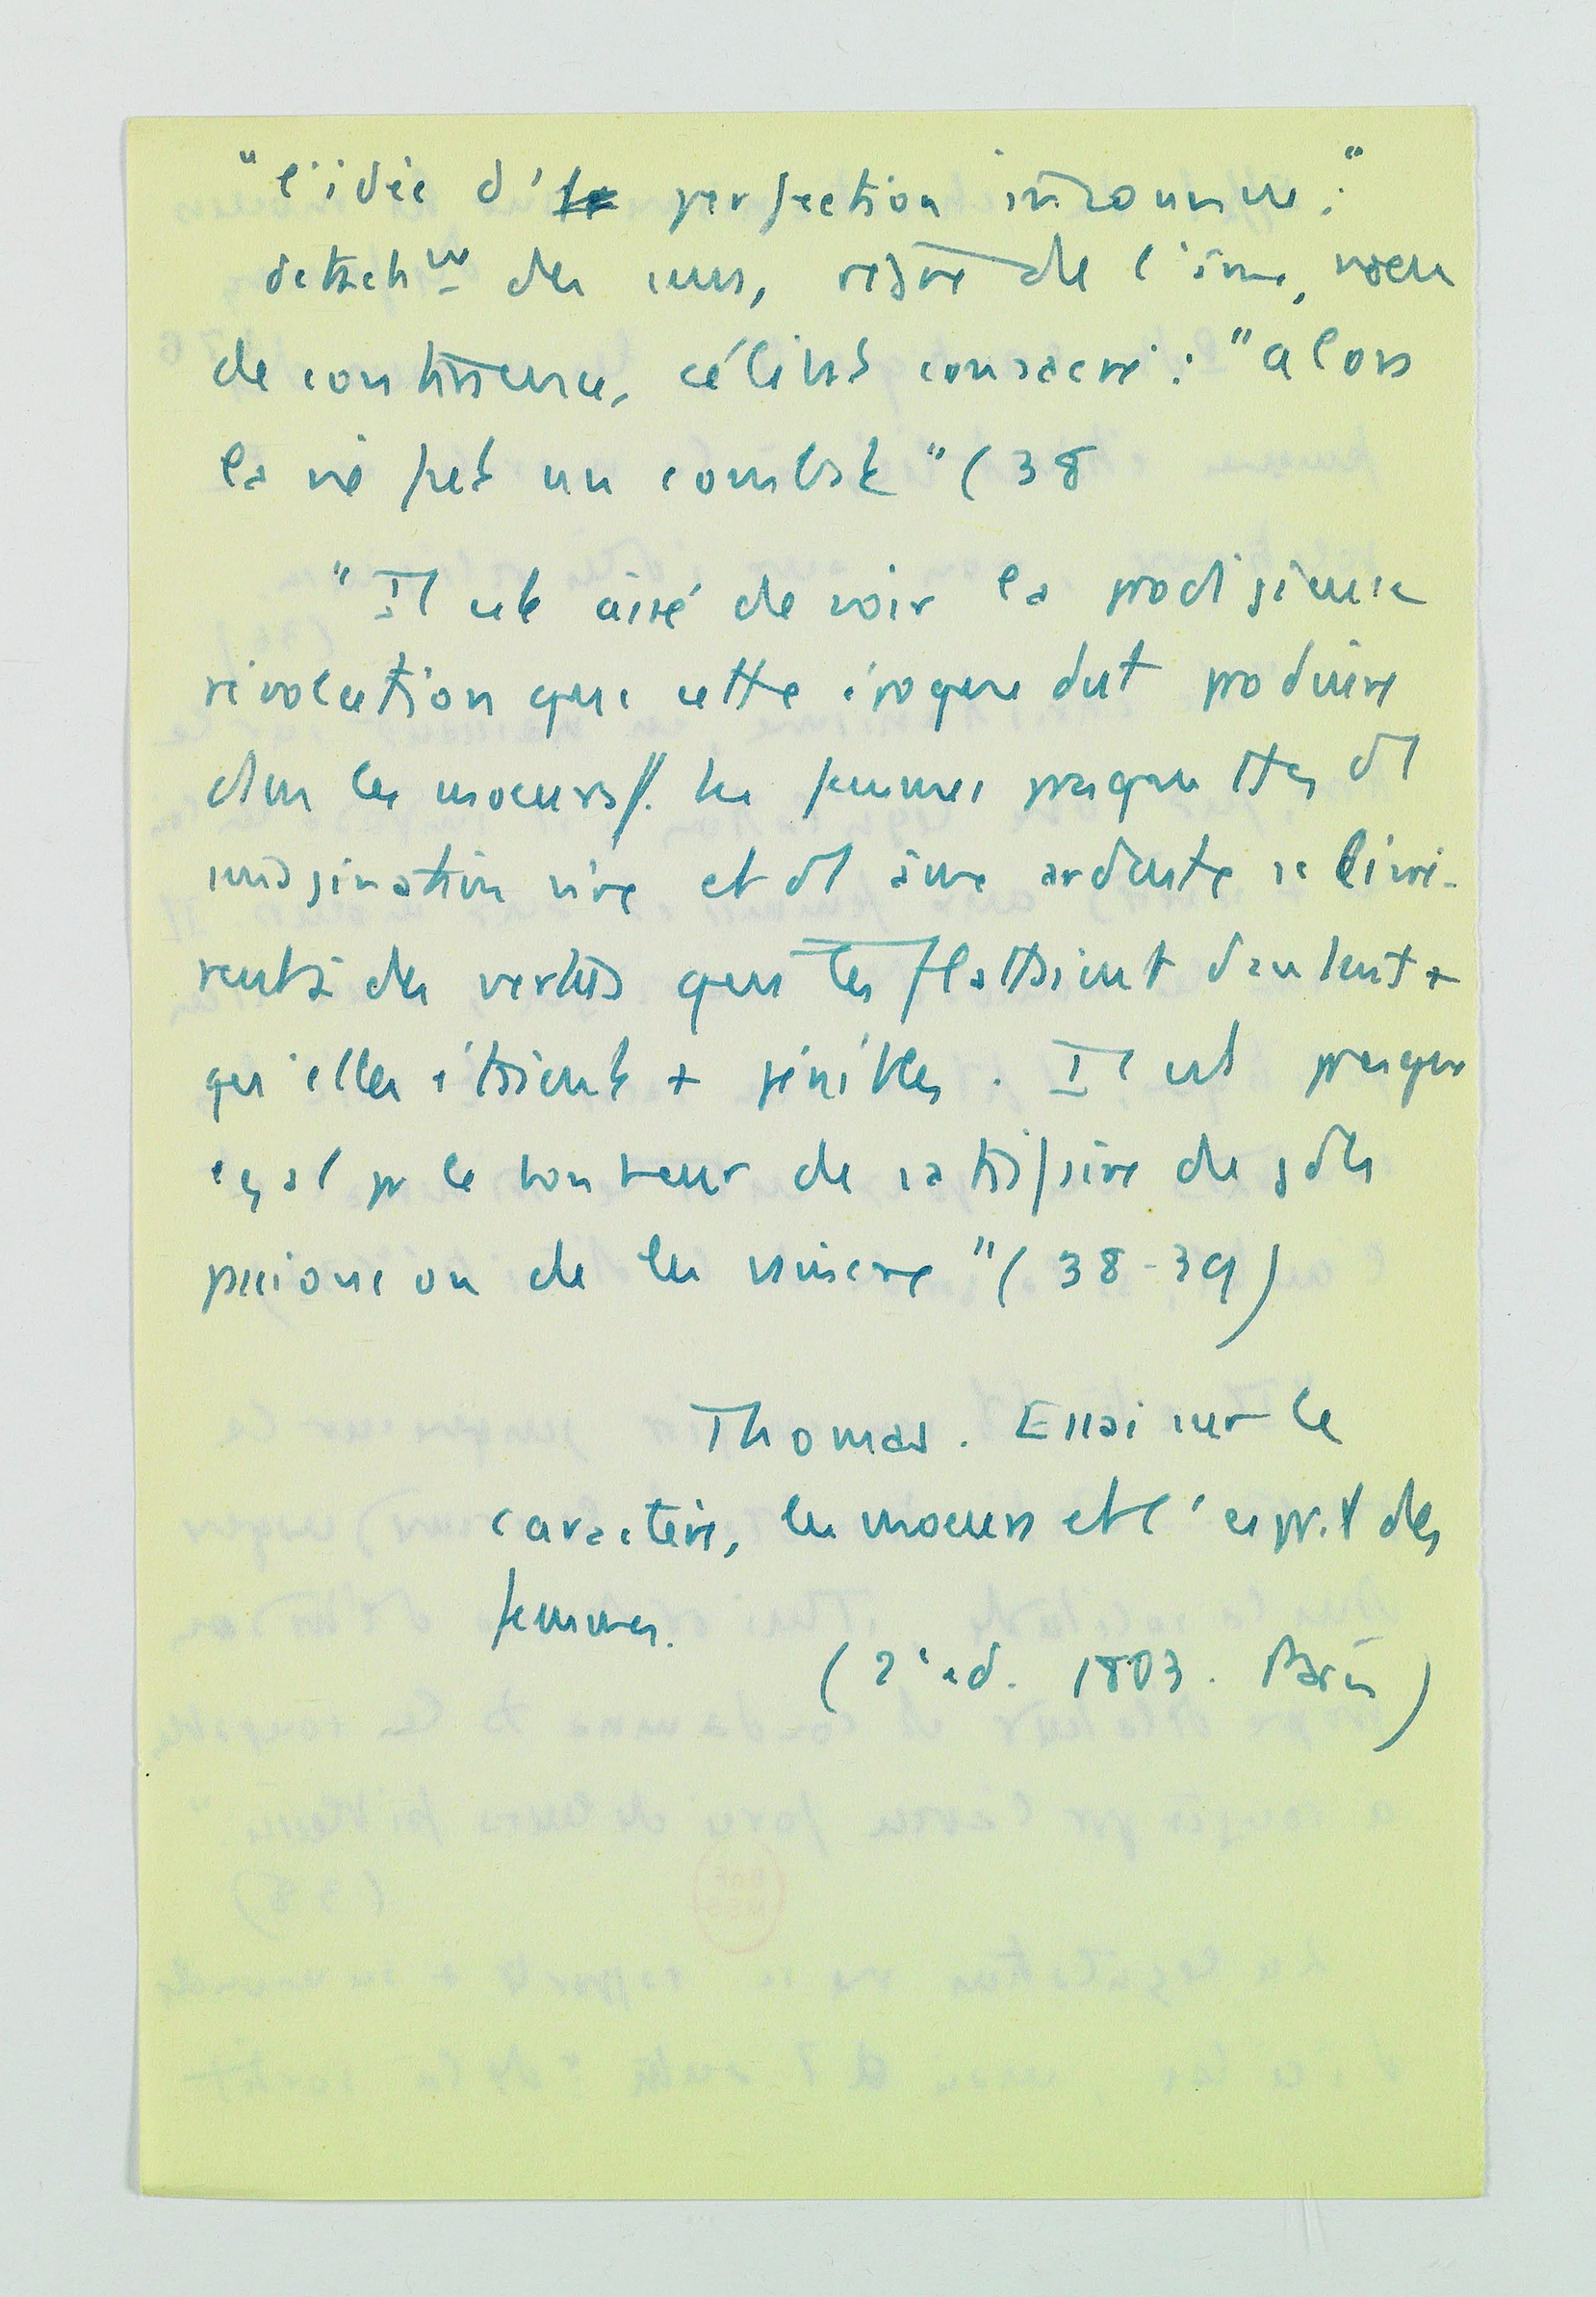 "l'idée d'le perfection inconnue :"
detachmt des sens, regne de l'âme, voeu
de continence, célibat consacré : "alors
la vie fut un combat" (38
"Il est aisé de voir la prodigieuse
révolution que cette époque dut produire
dans les moeurs. Les femmes presque ttes d'1
imagination vive et d'1 âme ardente se livrè-
rent à des vertus qui les flattaient d'autant +
qu'elles étaient + pénibles. Il est presque
égal pr le bonheur de satisfaire de gdes
passions ou de les vaincre" (38-39)
Thomas. Essai sur le
caractère, les moeurs et l'esprit des
femmes.
(2e ed. 1803. Paris)